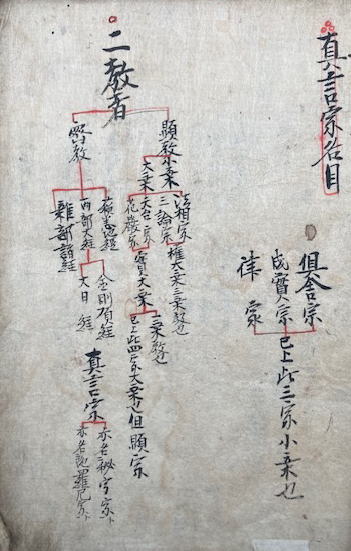 真言宗名目
倶舎宗
成實宗
律宗
已上此三宗小乗也
二教者
顯教
小乗
大乗
法相宗
三論宗
権大乗三乗教也
天台宗
花嚴宗
實大乗
一乗教也
已上此四宗大乗也但顯宗
密教
蘇悉地経
両部大経
雜部諸経
金剛頂経
大日経
真言宗
亦名秘密宗
亦名陀羅尼宗